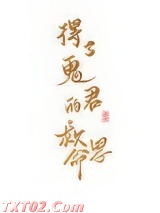 得了鬼君的救命恩
TXT02.Com